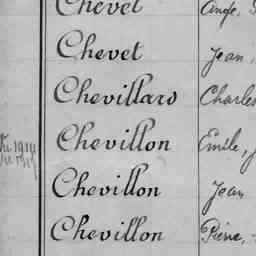 Chevet Ange,
Chevet Jean,
Chevillard Charles
Chevillon Émile, J
Chevillon Jean
Chevillon Pierre,